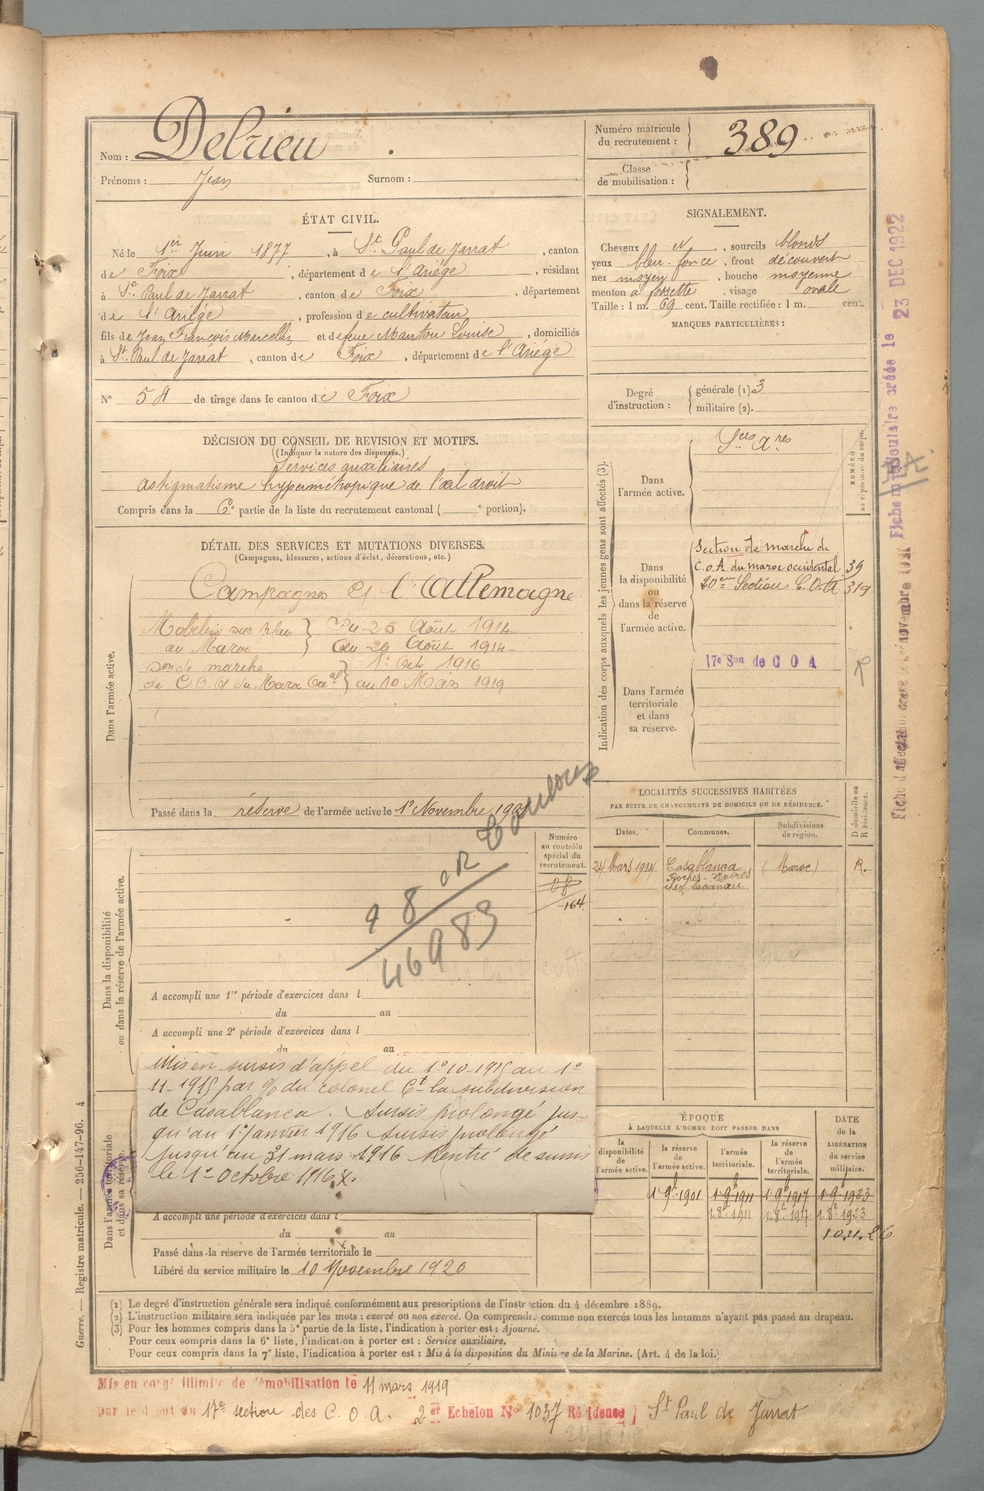 Nom : Delrieu
Prénoms : Jean Surnom :
Numéro matricule du recrutement : 389
Classe de mobilisation :
ÉTAT CIVIL.
Né le 1er Juin 1877, à St Paul de Jarrat, canton
de Foix, département de l'Ariège, résidant
à St Paul de Jarrat, canton de Foix, département
de l'Ariège, profession de cultivateur
fils de Jean François Marcellin et de feue Manton Louise, domiciliés
à St Paul de Jarrat, canton de Foix, département de l'Ariège
N° 58 de tirage dans le canton de Foix
SIGNALEMENT.
Cheveux et, sourcils blonds
yeux bleu-foncé, front découvert
nez moyen, bouche moyenne
menton à fossette, visage ovale
Taille : 1 m. 69 cent. Taille rectifiée : 1 m. cent.
MARQUES PARTICULIÈRES :
Degré d'instruction : générale (1). 3
militaire (2).
DÉCISION DU CONSEIL DE REVISION ET MOTIFS.
(Indiquer la nature des dispenses.)
Services auxiliaires
astigmatisme hypermétropique de l'œil droit
Compris dans la 6e partie de la liste du recrutement cantonal ( e portion).
DÉTAIL DES SERVICES ET MUTATIONS DIVERSES.
(Campagnes, blessures, actions d'éclat, décorations, etc.)
Dans l'armée active.
Campagnes
l'Allemagne
Mobilisé sur place Du 25 Août 1914
au Maroc au 29 Août 1914
Son de marche 1er Oct 1916
de C.O.A du Maroc Occal au 10 Mars 1919
Passé dans la réserve de l'armée active le 1er Novembre
Indication des corps auxquels les jeunes gens sont affectés (3).
NUMÉRO au répertoire du corps.
Dans l'armée active.
Sces Ares
Dans la disponibilité ou dans la réserve de l'armée active.
Section de marche de
C.O.A. du maroc occidental 39
20me Section C.O.A 319
17e Son de C O A
Dans l'armée territoriale et dans sa réserve.
R
LOCALITÉS SUCCESSIVES HABITÉES
PAR SUITE DE CHANGEMENTS DE DOMICILE OU DE RÉSIDENCE.
D domicile ou R résidence.
Dates. Communes. Subdivisions de région.
24 Mars 1914 Casablanca (Maroc) R.
Roches-Noires
chez
Numéro au contrôle spécial du recrutement.
164
Toulouse
46983
Dans la disponibilité ou dans la réserve de l'armée active.
A accompli une 1re période d'exercices dans l
du au
A accompli une 2e période d'exercices dans l
du au
Mis en sursis d'appel du 1er 10-1915 au 1er
11-1915 par % du colonel Ct la subdivision
de Casablanca. Sursis prolongé jus-
qu'au 1er Janvier 1916 Sursis prolongé
jusqu'au 31 mars 1916 Rentré de sursis
le 1er Octobre 1916
Dans l'armée territoriale et dans sa réserve.
A accompli une période d'exercices dans l
du au
Passé dans la réserve de l'armée territoriale le
Libéré du service militaire le 10 Novembre 1926
ÉPOQUE
À LAQUELLE L'HOMME DOIT PASSER DANS
DATE de la LIBÉRATION du service militaire.
la disponibilité de l'armée active. la réserve de l'armée active. l'armée territoriale. la réserve de l'armée territoriale.
1 9e 1901 1 9e 1911 1 9e 1917 1 9e 1923
1 8e 1911 1 8e 1917 1 8e 1923
10.11.26
(1) Le degré d'instruction générale sera indiqué conformément aux prescriptions de l'instruction du 4 décembre 1889.
(2) L'instruction militaire sera indiquée par les mots : exercé ou non exercé. On comprendra comme non exercés tous les hommes n'ayant pas passé au drapeau.
(3) Pour les hommes compris dans la 5e partie de la liste, l'indication à porter est : Ajourné.
Pour ceux compris dans la 6e liste, l'indication à porter est : Service auxiliaire.
Pour ceux compris dans la 7e liste, l'indication à porter est : Mis à la disposition du Ministre de la Marine. (Art. 4 de la loi.)
Mis en congé illimité de démobilisation le 11 mars 1919
par le dépôt du 17e section des C.O.A. 2 et Echelon N° 1037 Résidence St Paul de Jarrat
Guerre. — Registre matricule. — 256-147-96. 4
Fiche matriculaire créée le 23 DEC 1922